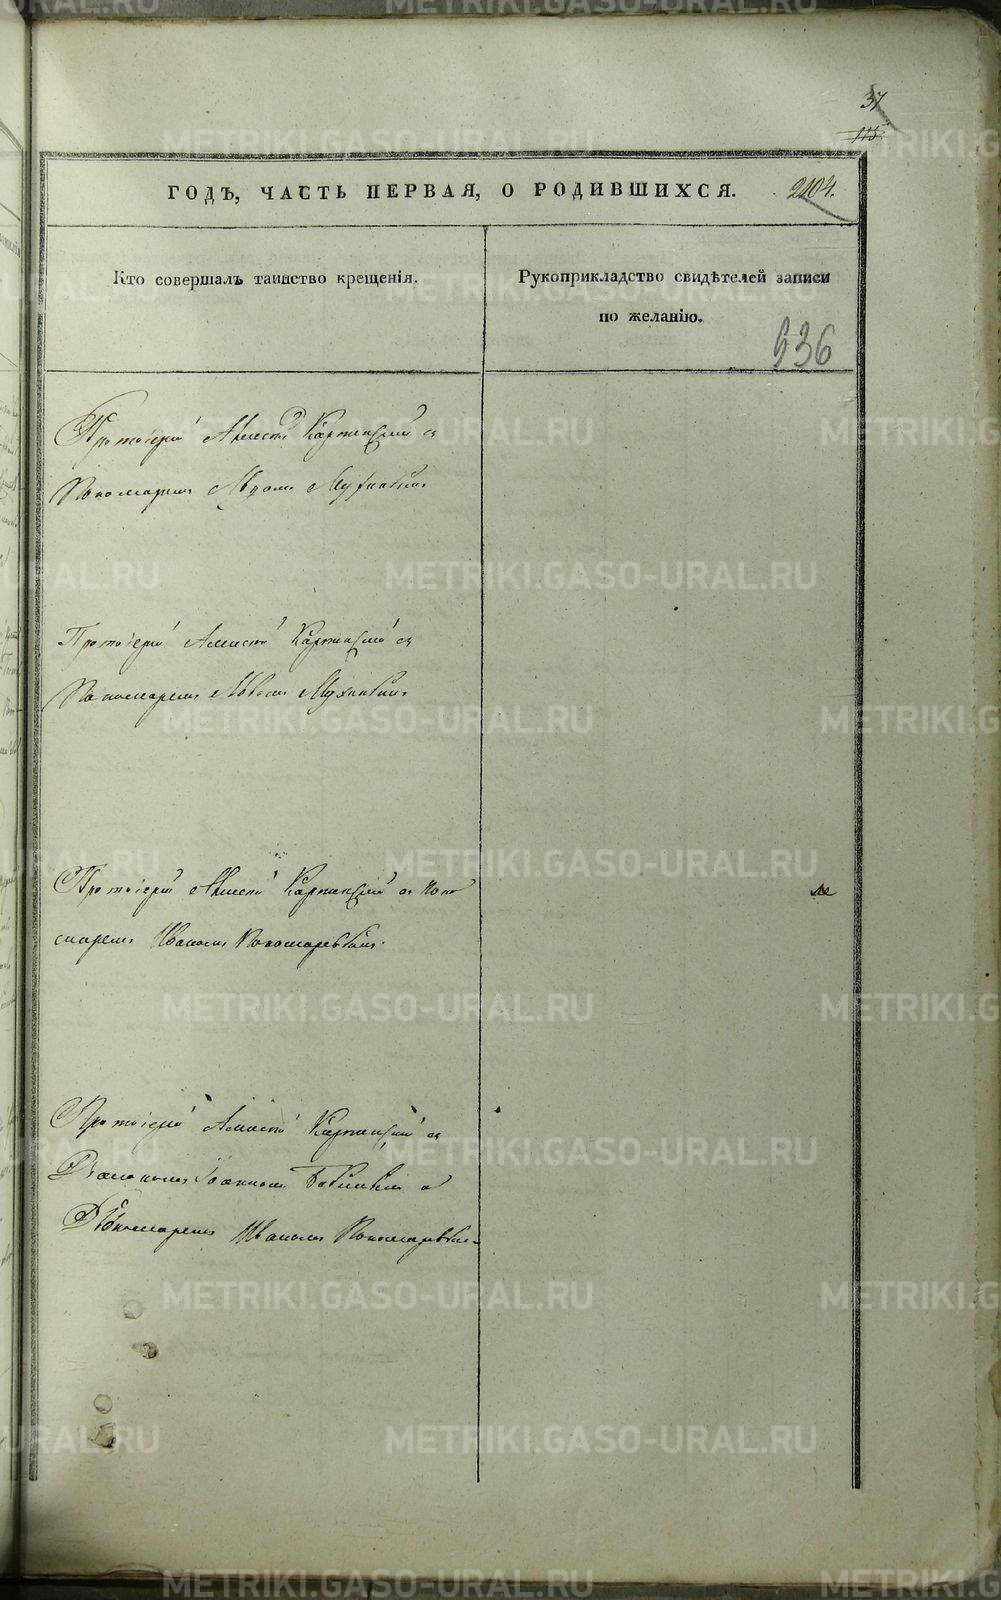 37
115
ГОДЪ, ЧАСТЬ ПЕРВАЯ, О РОДИВШИХСЯ. 2104.
Кто совершалъ таинство крещенія.
Рукоприкладство свидѣтелей записи
по желанію.
636
Протоіерей Алексѣй Карпинскій съ
Пономаремъ
Протоіерей Алексѣй Карпинскій съ
Пономаремъ
Протоіерей Алексѣй Карпинскій съ Поно
маремъ Иваномъ Пономаревымъ.
Протоіерей Алексѣй Карпинскій съ
Діакономъ Іоанномъ и
Пономаремъ Иваномъ Пономаревымъ
METRIKI.GASO-URAL.RU